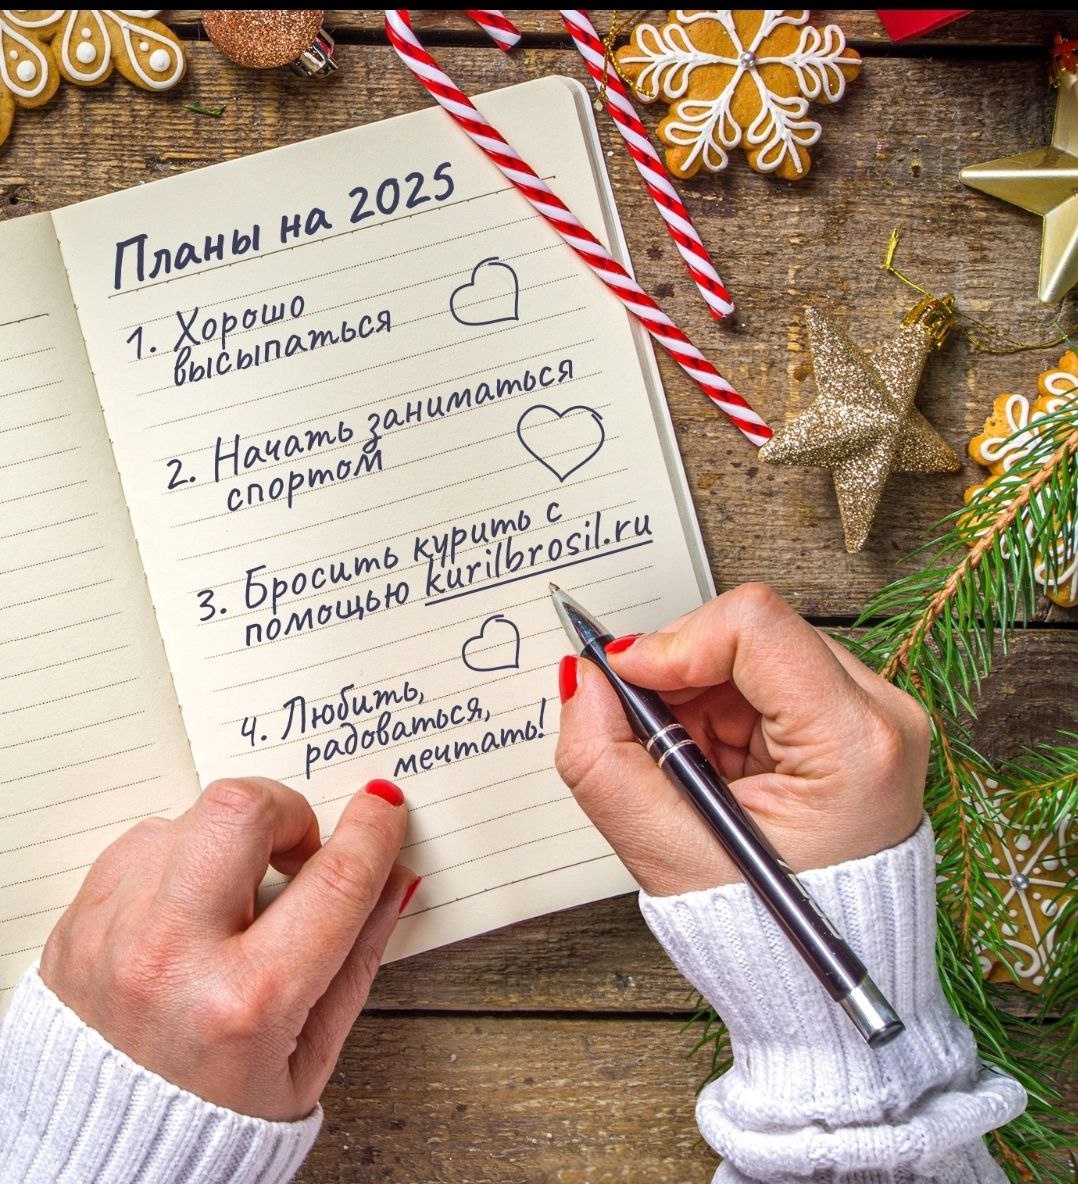 Планы на 2025
1. Хорошо
высыпаться
2. Начать заниматься
спортом
3. Бросить курить с
помощью kurilbrosil.ru
4. Любить,
радоваться,
мечтать!